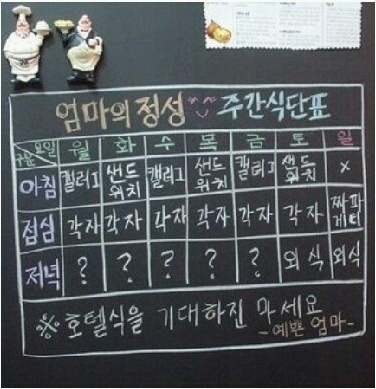 엄마의 정성 ^^ 주간식단표
구분 요일 월 화 수 목 금 토 일
아침 캘러그 샌드위치 캘러그 샌드위치 캘러그 샌드위치 x
점심 각자 각자 각자 각자 각자 각자 짜파게티
저녁 ? ? ? ? ? 외식 외식
※호텔식을 기대하진 마세요
-예쁜 엄마-